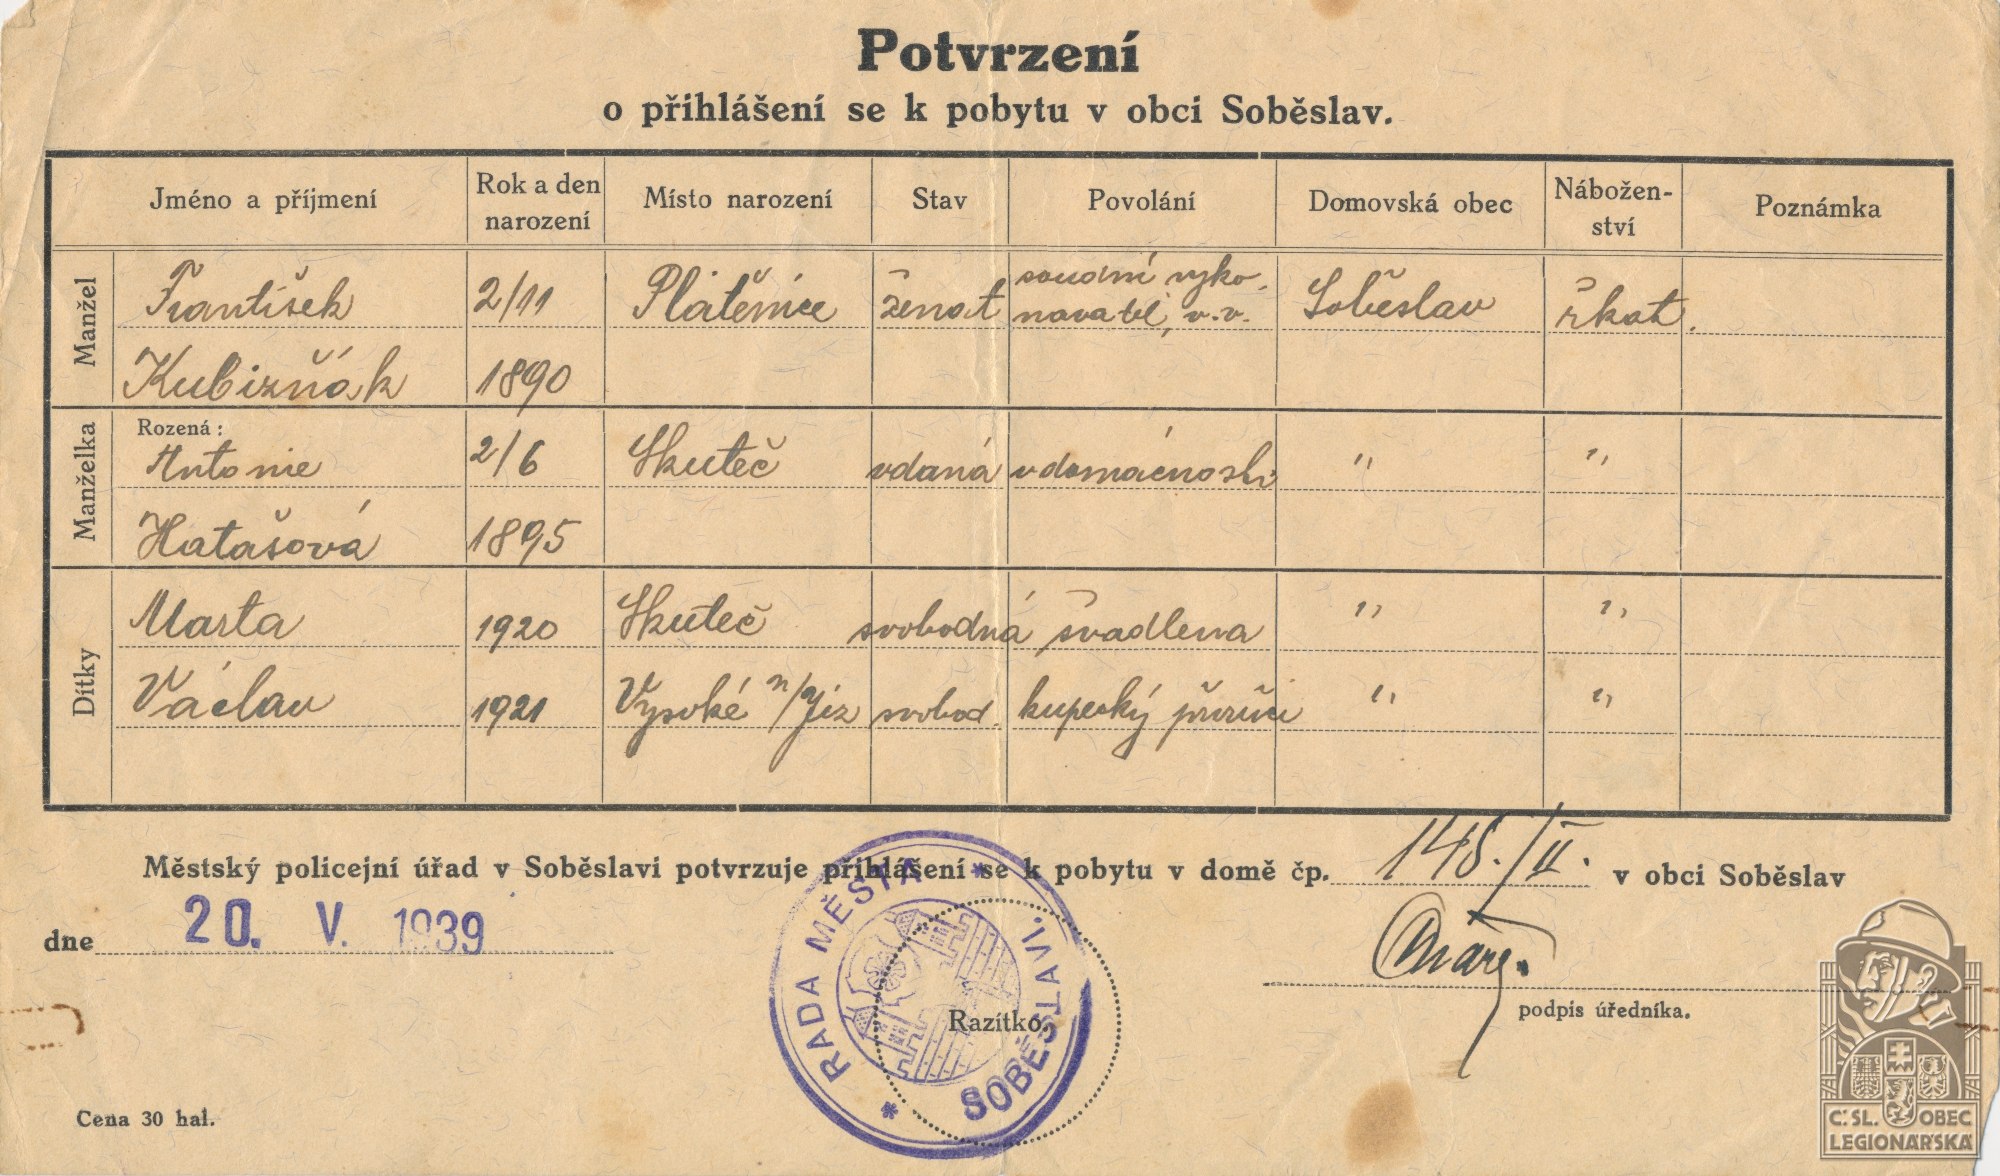 Potvrzení
o přihlášení se k pobytu v obci Soběslav.
Jméno a příjmení Rok a den narození Místo narození Stav Povolání Domovská obec Nábožen-ství Poznámka
Manžel
František 2/11 Platěnice ženat soudní vyko-
navatel, v.v. Soběslav řkat.
Kubizňák 1890
Manželka
Rozená:
Antonie 2/6 Skuteč vdaná v domácnosti " "
Hatašová 1895
Dítky
Marta 1920 Skuteč svobodná švadlena " "
Václav 1921 Vysoké n/Jiz svobod. kupecký příručí " "
Městský policejní úřad v Soběslavi potvrzuje přihlášení se k pobytu v domě čp. 148./II. v obci Soběslav
dne 20. V. 1939
podpis úředníka.
Razítko
* RADA MĚSTA * SOBĚSLAVI.
Cena 30 hal.
Č SL. OBEC
LEGIONÁŘSKÁ